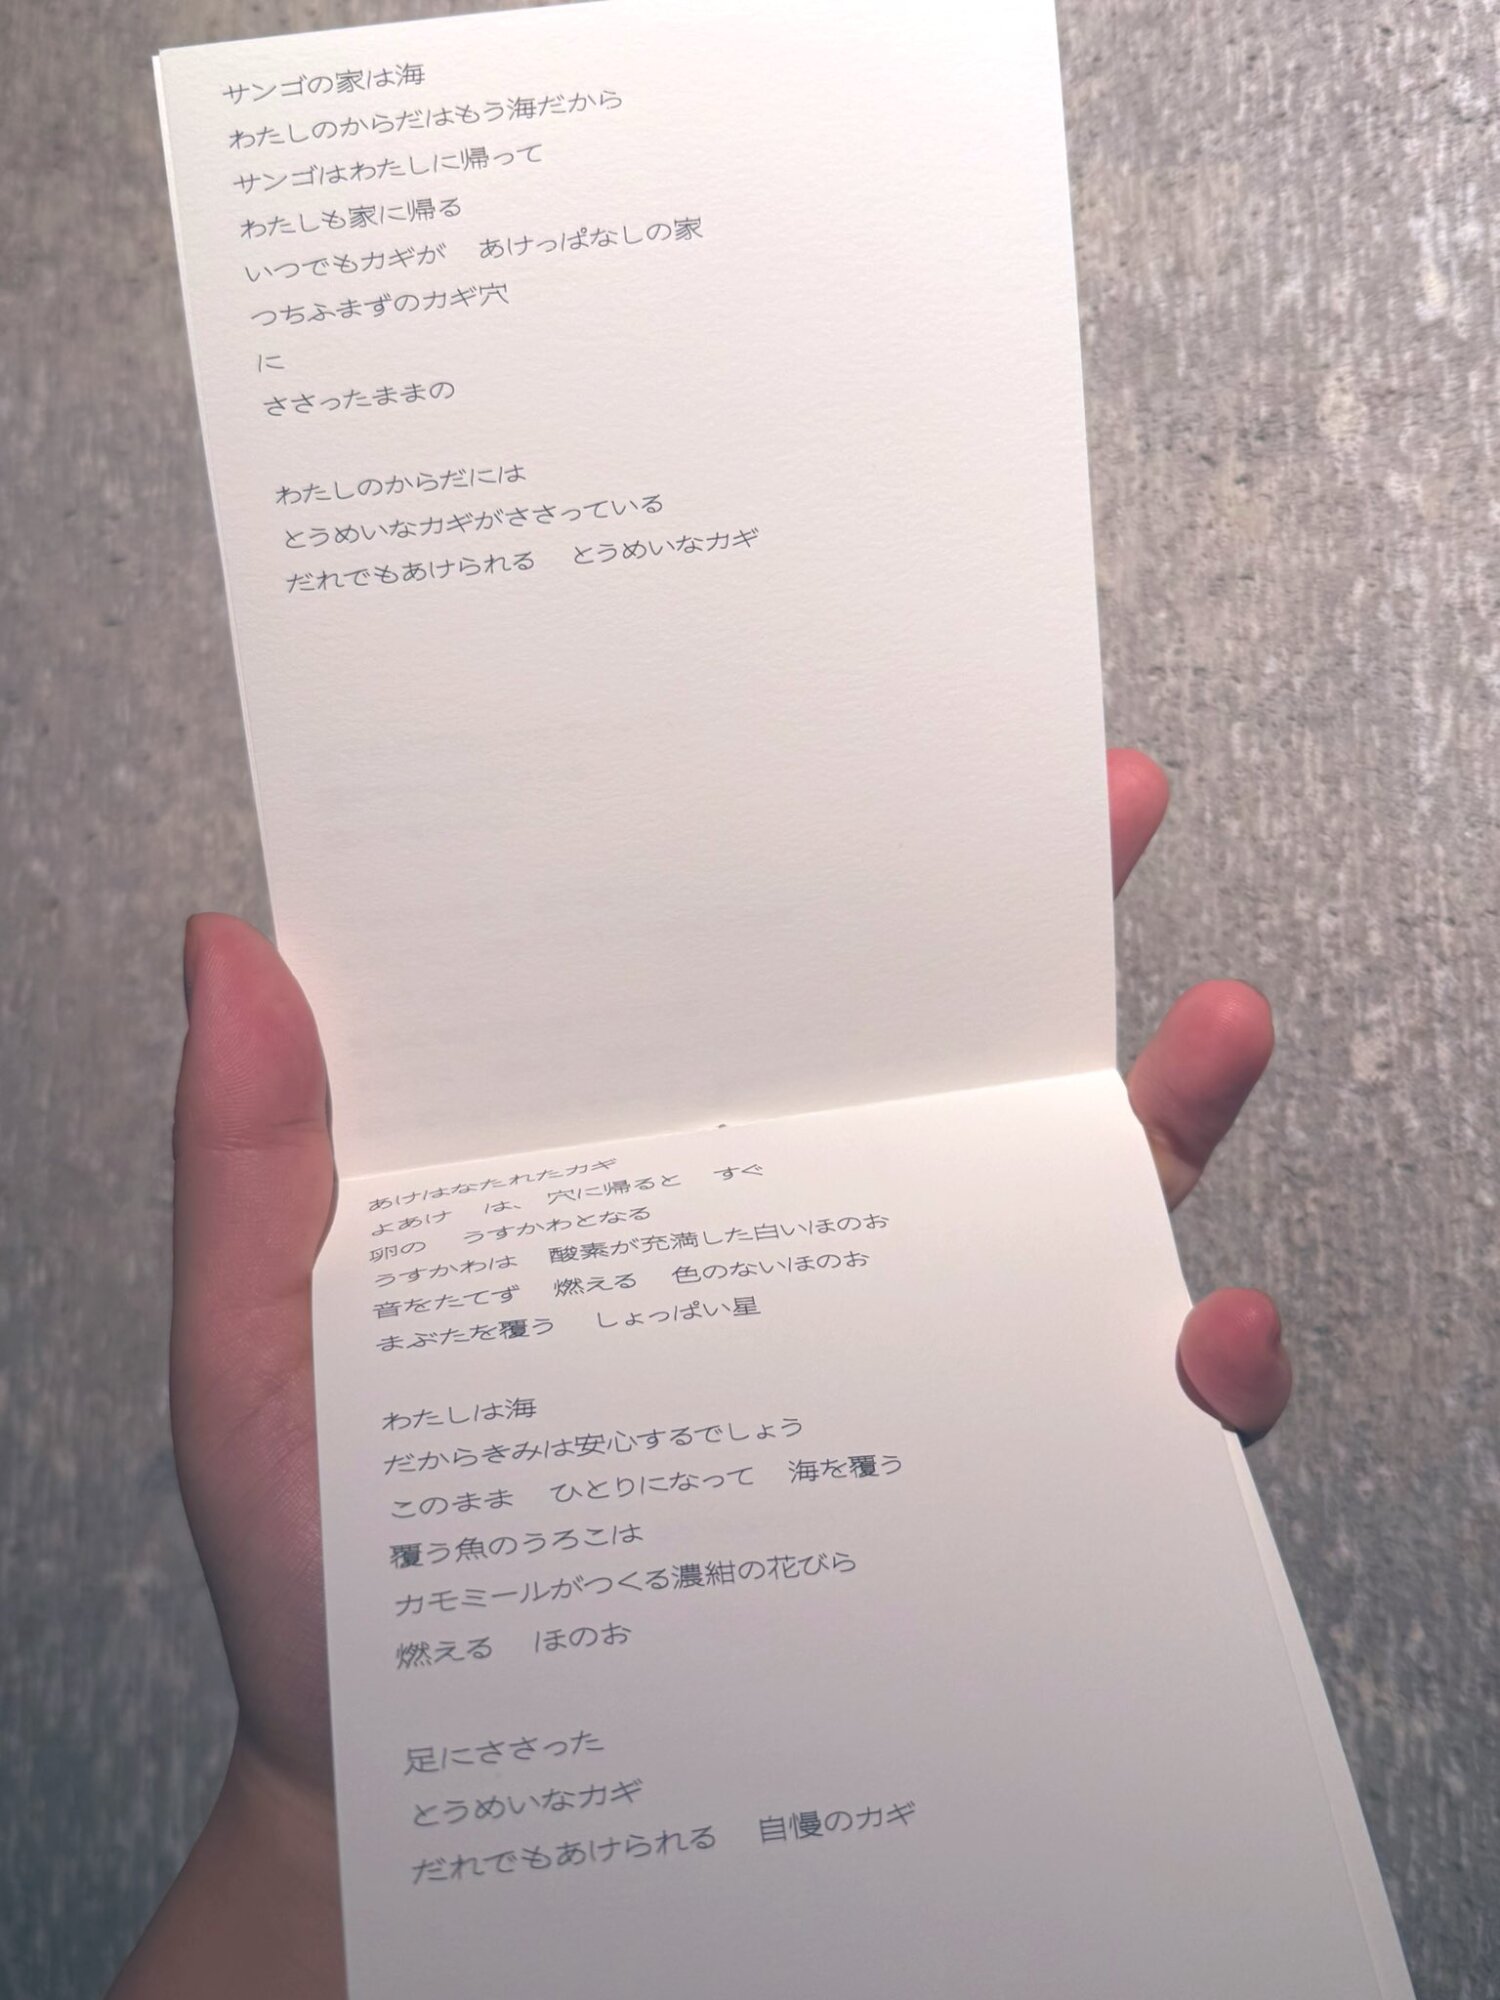 サンゴの家は海
わたしのからだはもう海だから
サンゴはわたしに帰って
わたしも家に帰る
いつでもカギが　あけっぱなしの家
つちふまずのカギ穴
に
ささったままの
わたしのからだには
とうめいなカギがささっている
だれでもあけられる　とうめいなカギ
あけはなたれたカギ
よあけ　は、　穴に帰ると　すぐ
卵の　うすかわとなる
うすかわは　酸素が充満した白いほのお
音をたてず　燃える　色のないほのお
まぶたを覆う　しょっぱい星
わたしは海
だからきみは安心するでしょう
このまま　ひとりになって　海を覆う
覆う魚のうろこは
カモミールがつくる濃紺の花びら
燃える　ほのお
足にささった
とうめいなカギ
だれでもあけられる　自慢のカギ